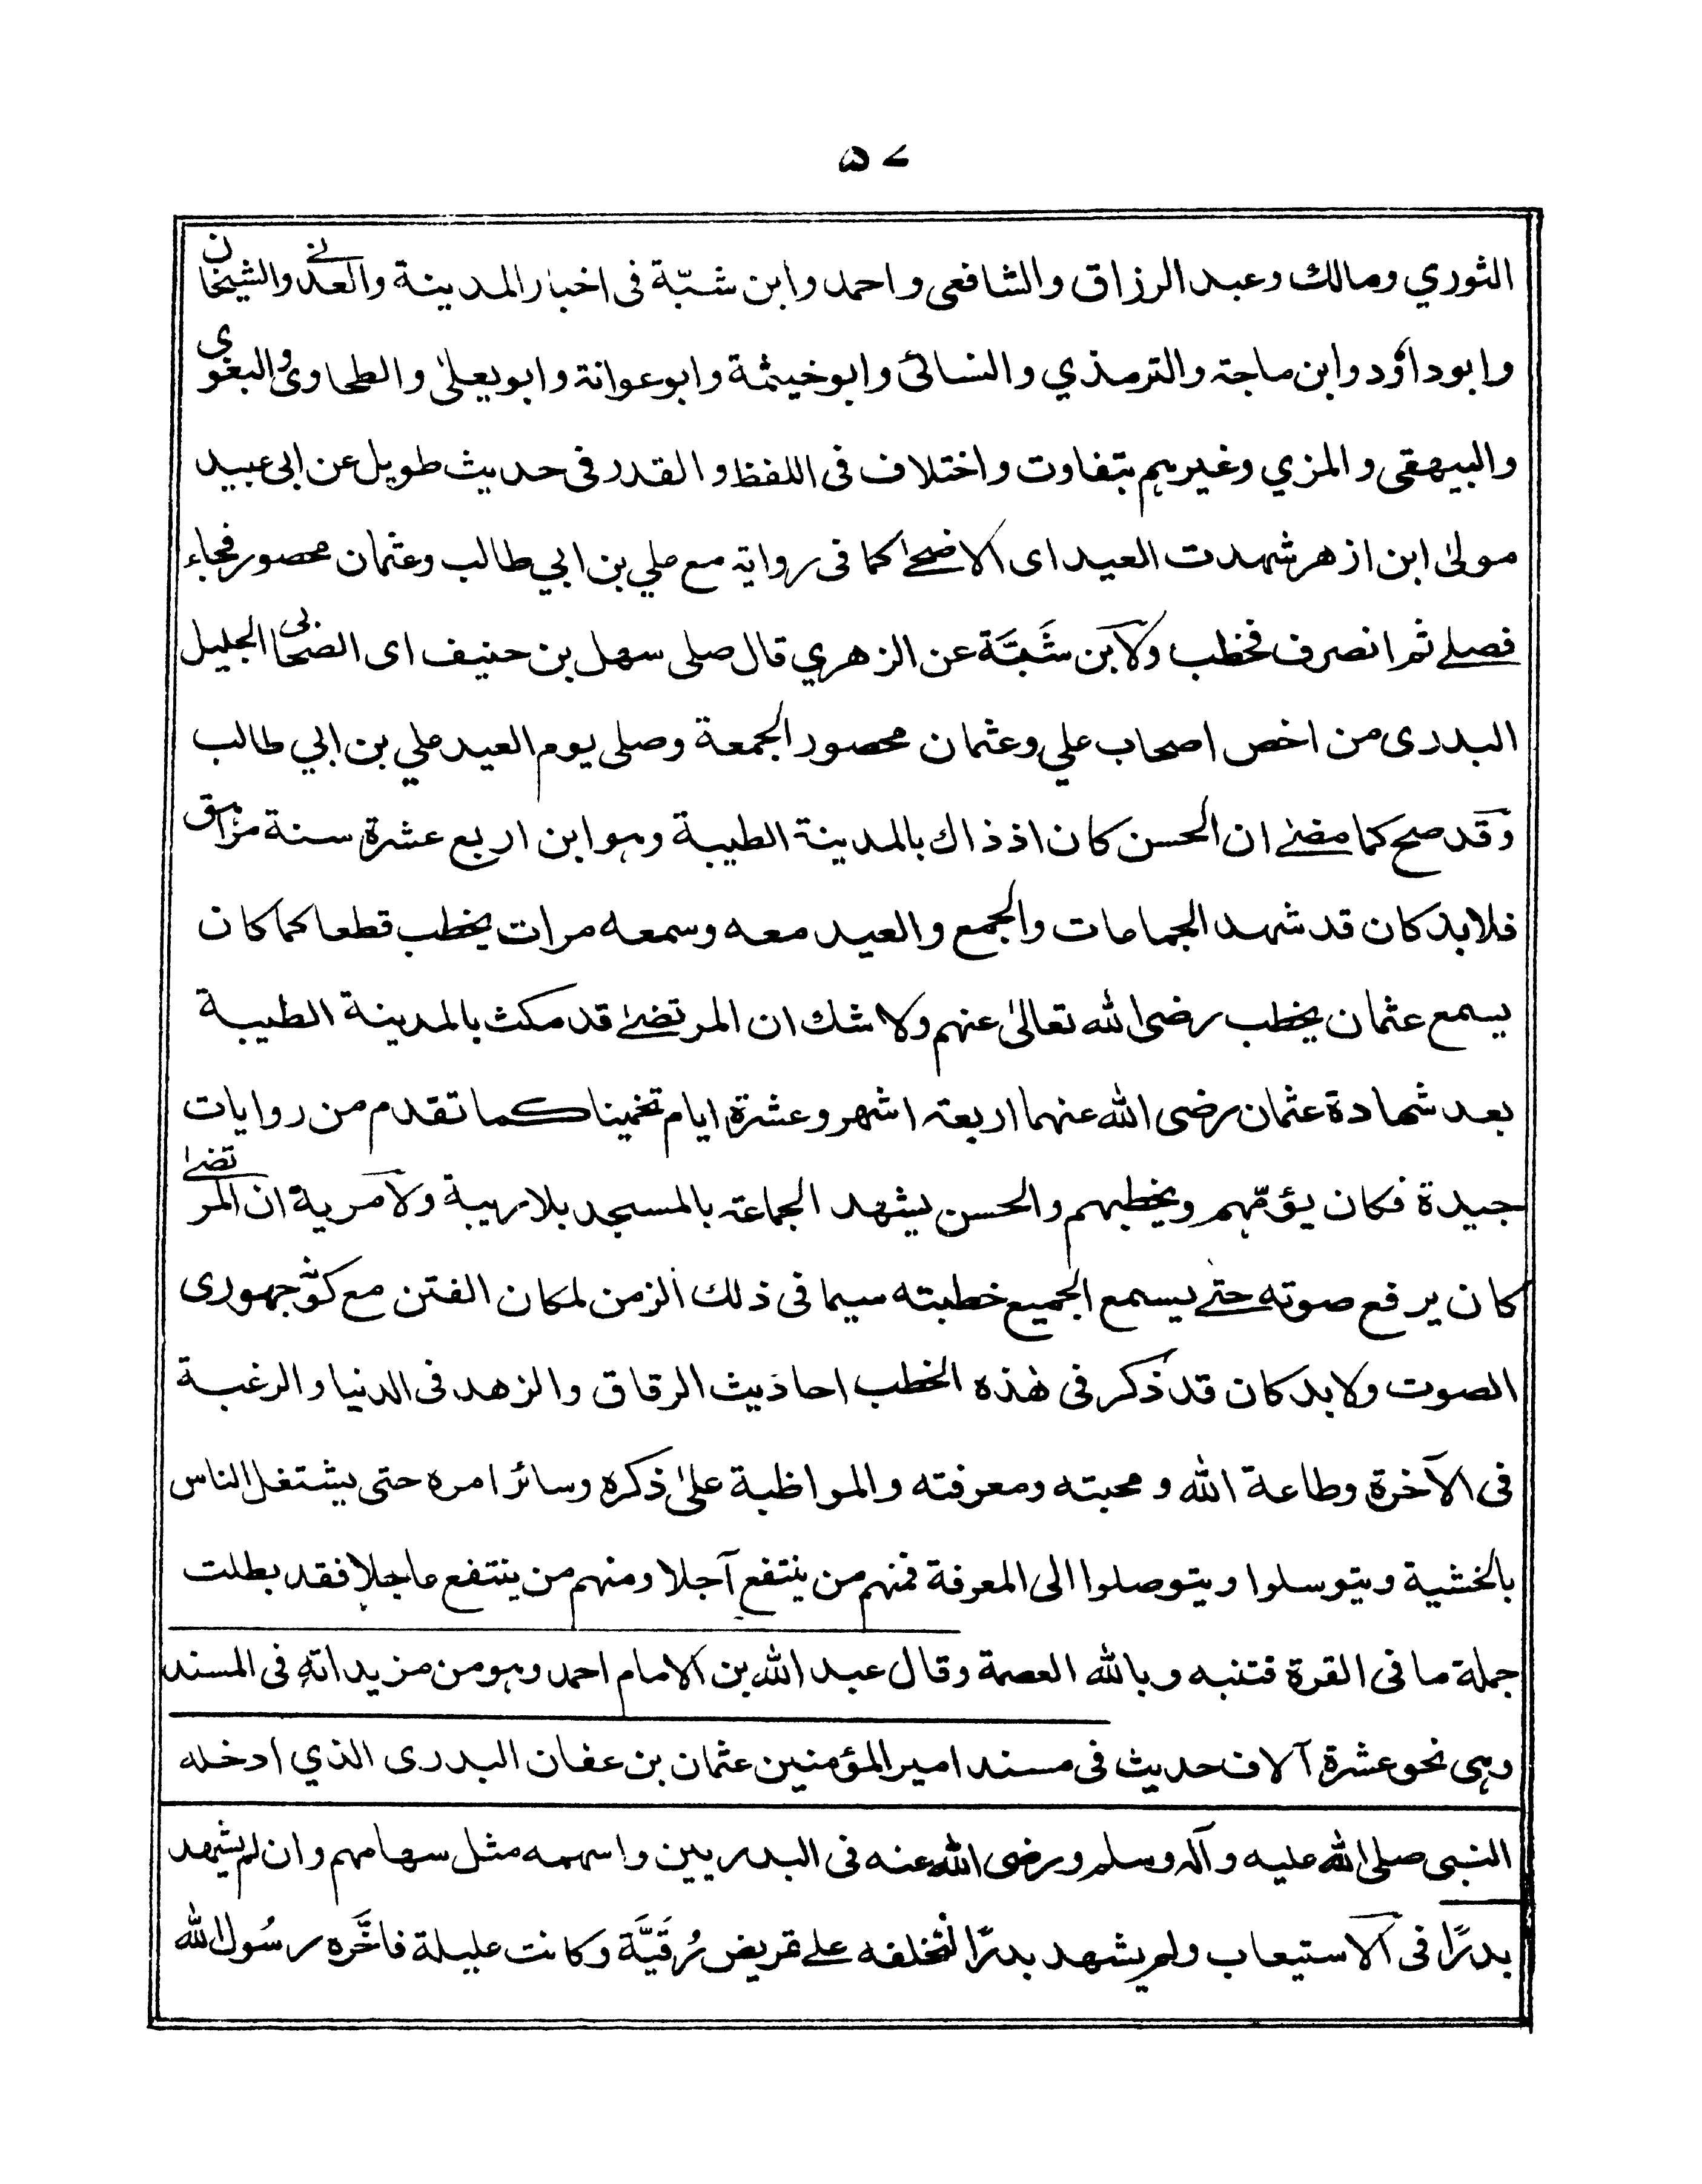 ۵۷
الثوري ومالك وعبد الرزاق والشافعی واحمد وابن شبّة فی اخبار المدينة والعدنے والشيخان
وابوداؤد وابن ماجة والترمذي والنسائی وابوخيثمة وابوعوانة وابويعلیٰ والطحاوی والبغوی
والبيهقی والمزي وغيرہم بتفاوت واختلاف فی اللفظ والقدر فی حديث طويل عن ابی عبيد
مولیٰ ابن ازهر شهدت العيد ای الاضحےٰ كما فی رواية مع علي بن ابي طالب وعثمان محصور فجاء
فصلے ثم انصرف فخطب ولابن شَبَّة عن الزهري قال صلی سهل بن حنيف ای الصحابی الجليل
البدری من اخص اصحاب علي وعثمان محصور الجمعة وصلی يوم العيد علي بن ابي طالب
وقد صح كما مضےٰ ان الحسن كان اذ ذاك بالمدينة الطيبة وہو ابن اربع عشرة سنة مراہق
فلابد كان قد شهد الجماعات والجمع والعيد معه وسمعه مرات يخطب قطعا كما كان
يسمع عثمان يخطب رضی الله تعالیٰ عنهم ولا شك ان المرتضےٰ قد مكث بالمدينة الطيبة
بعد شهادة عثمان رضی الله عنهما اربعة اشهر وعشرة ايام تخمينا كما تقدم من روايات
جيدة فكان يؤمّهم ويخطبهم والحسن يشهد الجماعة بالمسجد بلا ريبة ولا مرية ان المرتضےٰ
كان يرفع صوته حتے يسمع الجميع خطبته سيما فی ذلك الزمن لمكان الفتن مع كونہ جهوری
الصوت ولابد كان قد ذكر فی هٰذه الخطب احاديث الرقاق والزهد فی الدنيا والرغبة
فی الآخرة وطاعة الله ومحبته ومعرفته والمواظبة علیٰ ذكره وسائر امره حتی يشتغل الناس
بالخشية ويتوسلوا ويتوصلوا الی المعرفة فمنهم من ينتفع آجلا ومنهم من ينتفع عاجلا فقد بطلت
جملة ما فی القرة فتنبه وبالله العصمة وقال عبد الله بن الامام احمد وہو من مزيداتہ فی المسند
وہی نحو عشرة آلاف حديث فی مسند امير المؤمنين عثمان بن عفان البدری الذي ادخله
النبی صلی الله عليه وآلہ وسلم ورضی الله عنه فی البدريين واسهمه مثل سهامهم وان لم يشهد
بدرًا فی الاستيعاب ولم يشهد بدرًا لتخلفه علے تمريض رُقَيَّة وكانت عليلة فاخَّره رسُول الله